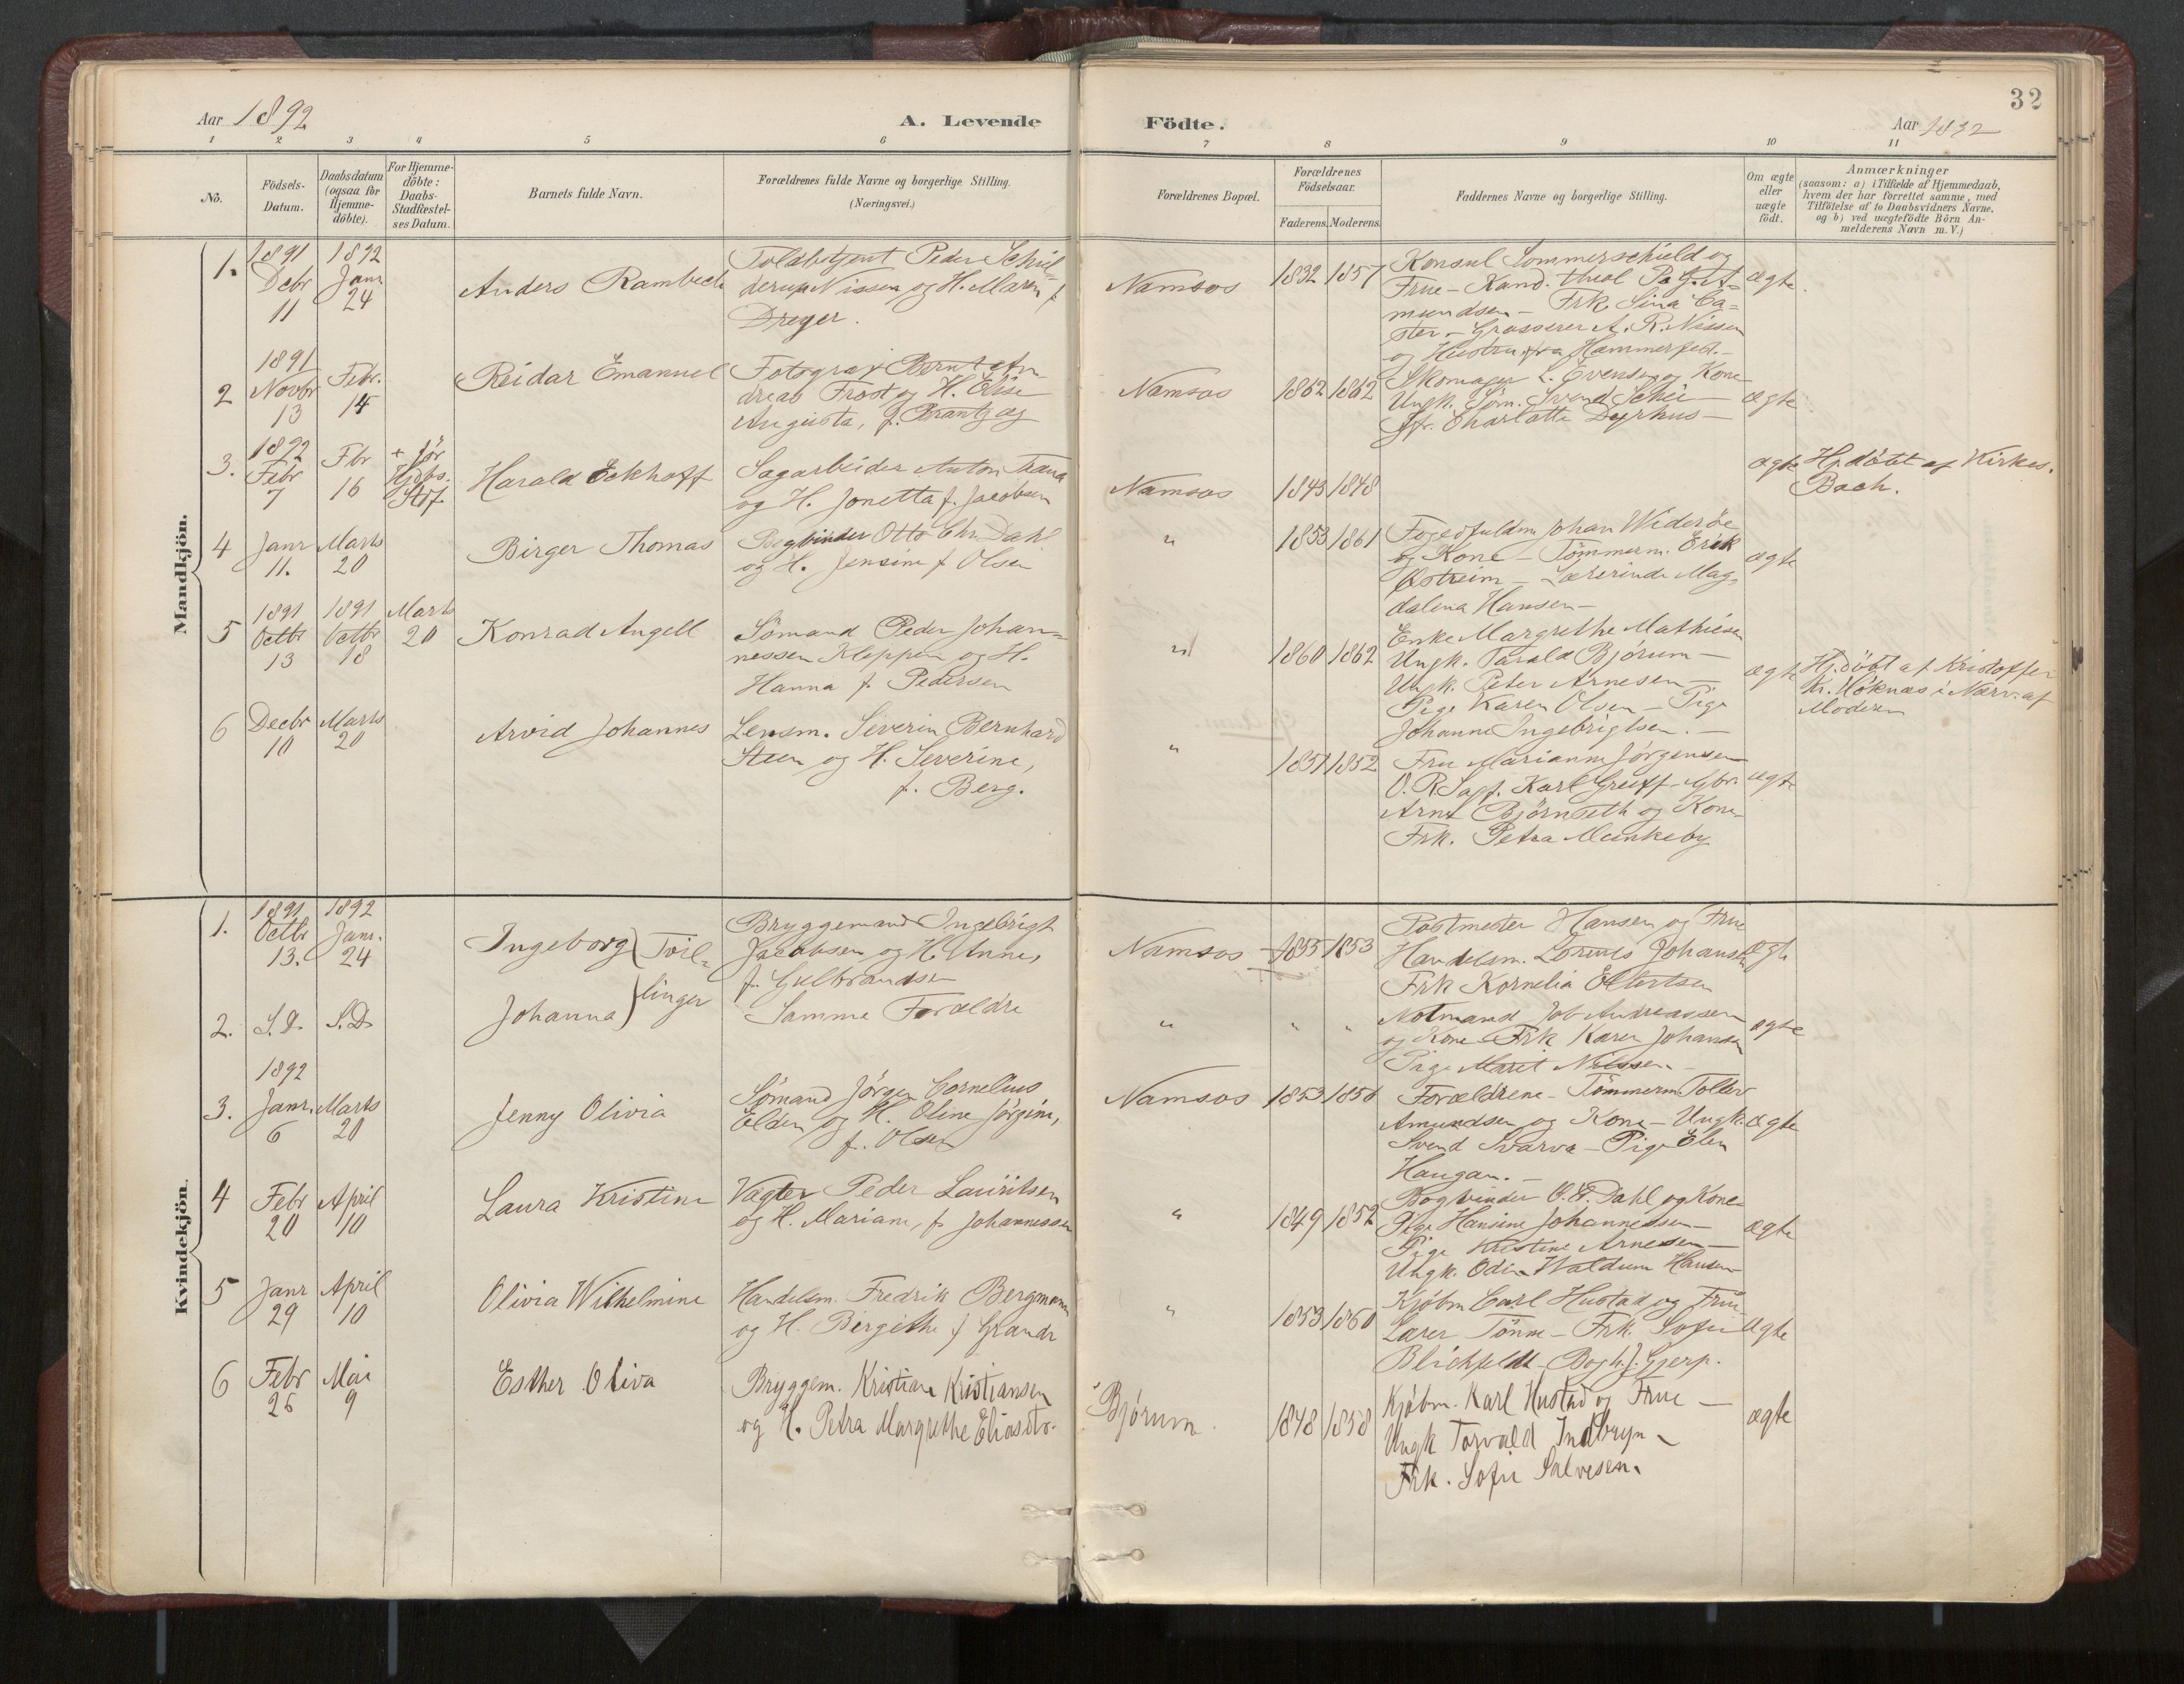 Aar 1892
A. Levende
Födte.
32
Aar 1892
1 2 3 4 5 6 7 8 9 10 11
No.
Födsels-
Datum.
Daabsdatum
(ogsaa for
Hjemme-
döbte).
For Hjemme-
döbte:
Daabs-
Stadfæstel-
ses Datum.
Barnets fulde Navn.
Forældrenes fulde Navne og borgerlige Stilling.
(Næringsvei.)
Forældrenes Bopæl.
Forældrenes
Födselsaar.
Faderens. Moderens.
Faddernes Navne og borgerlige Stilling.
Om ægte
eller
uægte
födt.
Anmærkninger
(saasom: a) i Tilfælde af Hjemmedaab,
hvem der har forrettet samme, med
Tilföielse af to Daabsvidners Navne,
og b) ved uægtefödte Börn An-
melderens Navn m. V.)
Mandkjön.
1.
1891
Decbr
11
1892
Janr
24
Anders Rambech
Toldbetjent Peder Schil-
derup Nissen og H. Maren f.
Dreyer.
Namsos
1832 1857
Konsul Sommerschield og
Frue - Kand. theol P. G. A-
mundsen - Frk Sina Ca-
ster - Grosserer A. R. Nissen
og Hustru fra Hammerfest. -
ægte.
2
1891
Novbr
13
Febr.
14
Reidar Emanuel
Fotograf Bernt An-
dreas Frost og H. Elise
Augusta, f. Brantzæg
Namsos
1862 1862
Skomager L. Evensen og Kone
Ungk. Söm. Svend Schei -
Jfr. Charlotte Dyrhus -
ægte
3.
1892
Febr
7
Fbr
16
+ før
Hjdbs.
Stf.
Harald Eckhoff
Sagarbeider Anton Trana
og H. Jonetta f. Jacobsen
Namsos
1843 1848
ægte
Hj.döbt af Kirkes.
Bach.
4
Janr
11.
Marts
20
Birger Thomas
Bogbinder Otto Chr. Dahl
og H. Jensine f Olsen
"
1853 1861
Fogedfuldm Johan Wideröe
og Kone - Tömmerm. Erik
Østreim - Lærerinde Mag-
dalena Hansen -
ægte
5
1891
Octbr
13
1891
Octbr
18
Marts
20
Konrad Angell
Sömand Peder Johan-
nessen Kleppen og H.
Hanna f. Pedersen
"
1860 1862
Enke Margrethe Mathisen
Ungk. Tarald Bjørum -
Ungk. Peter Arnesen -
Pige Karen Olsen - Pige
Johanne Ingebrigtsen. -
ægte
Hj.döbt af Kristoffer
Kr. Höknæs i Nærv. af
Moderen
6
Decbr
10
Marts
20
Arvid Johannes
Lensm. Severin Bernhard
Steen og H. Severine,
f. Berg.
"
1851 1852
Fru Marianne Jörgensen
O. R. Sagf. Karl Greiff - Gbr.
Arnt Björnseth og Kone
Frk. Petra Munkeby
ægte
Kvindekjön.
1.
1891
Octbr
13.
1892
Janr.
24
Ingeborg } Tvil-
Bryggemand Ingebrigt
Jacobsen og H. Anne,
f. Gulbrandsen
Namsos
1855 1853
Postmester Hansen og Frue
Handelsm. Lorents Johansen
Frk Kornelia Ellertsen
ægte
2.
S. D.
S. D.
Johanna } linger
Samme Forældre
" " "
Notmand Job Andreassen
og Kone - Frk Karen Johansen
Pige Marit Nilssen. -
ægte
3.
1892
Janr.
6
Marts
20
Jenny Olivia
Sömand Jörgen Cornelius
Elden og H. Oline Jörgine,
f. Olsen
Namsos
1853 1856
Forældrene - Tömmerm Tollev
Amundsen og Kone - Ungk.
Svend Svarva - Pige Elen
Haugan. -
ægte
4
Febr
20
April
10
Laura Kristine
Vægter Peder Lauritsen
og H. Mariane, f. Johannessen
"
1849 1852
Bogbinder O. C. Dahl og Kone
Pige Hansine Johannessen -
Pige Kristine Arnesen -
Ungk. Odin Waldum Hansen
ægte
5
Janr
29
April
10
Olivia Wilhelmine
Handelsm. Fredrik Bergmann
og H. Birgithe f Grande
"
1853 1860
Kjöbm Carl Hustad og Frue
Lærer Tönne - Frk. Sofie
Blichfeldt - Bogh. J. Gjerp.
ægte
6
Febr
26
Mai
9
Esther Oliva
Bryggem. Kristian Kristiansen
og H. Petra Margrethe Eliasdtr.
Bjørum.
1848 1858
Kjöbm. Karl Hustad og Frue -
Ungk Torvald Indbryn -
Frk. Sofie Salvesen.
ægte